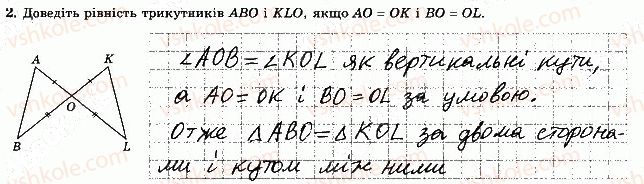 2. Доведіть рівність трикутників ABO і KLO, якщо AO = OK і BO = OL.
A K
O
B L
∠AOB = ∠KOL як вертикальні кути,
а AO = OK і BO = OL за умовою.
Отже △ABO = △KOL за двома сторона-
ми і кутом між ними